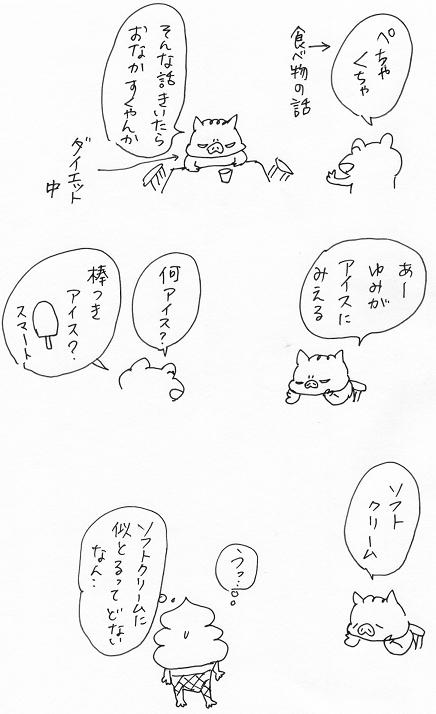 ペちゃ
くちゃ
食べ物の話
そんな話きいたら
おなかすくやんか
ダイエット
中
あー
ゆみが
アイスに
みえる
何アイス?
棒つき
アイス?
スマート
ソフト
クリーム
うっ…
ソフトクリームに
似とるってどない
なん…